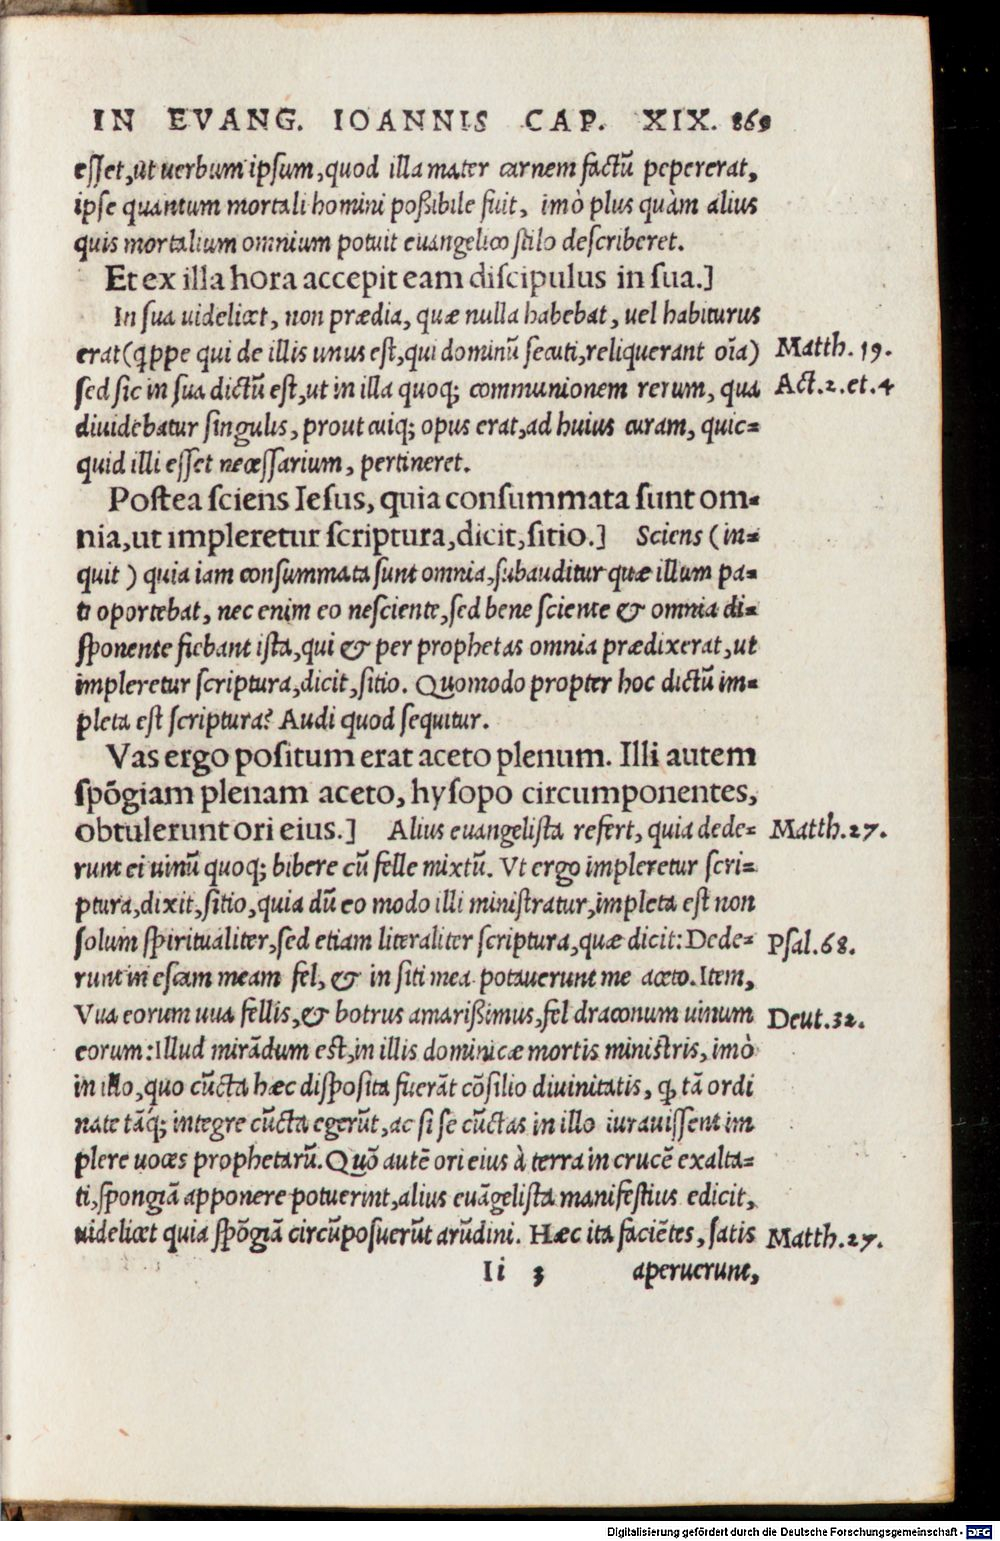 IN EVANG. IOANNIS CAP. XIX. 869
eſſet,ut uerbum ipſum,quod illa mater carnem factũ pepererat,
ipſe quantum mortali homini poßibile fuit, imò plus quàm alius
quis mortalium omnium potuit euangelico ſtilo deſcriberet.
Et ex illa hora accepit eam diſcipulus in ſua.]
In ſua uidelicet, non prædia, quæ nulla habebat, uel habiturus
erat(qppe qui de illis unus eſt,qui dominũ ſecuti,reliquerant oĩa) Matth. 19.
ſed ſic in ſua dictũ eſt,ut in illa quoq; communionem rerum, qua Act.2.et.4
diuidebatur ſingulis, prout cuiq; opus erat,ad huius curam, quic=
quid illi eſſet neceſſarium, pertineret.
Poſtea ſciens Ieſus, quia conſummata ſunt om=
nia,ut impleretur ſcriptura,dicit,ſitio.] Sciens (in=
quit ) quia iam conſummata ſunt omnia,ſubauditur quæ illum pa=
ti oportebat, nec enim eo neſciente,ſed bene ſciente & omnia di=
ſponente fiebant iſta,qui & per prophetas omnia prædixerat,ut
impleretur ſcriptura,dicit,ſitio. Quomodo propter hoc dictũ im=
pleta eſt ſcriptura? Audi quod ſequitur.
Vas ergo poſitum erat aceto plenum. Illi autem
ſpõgiam plenam aceto, hyſopo circumponentes,
obtulerunt ori eius.] Alius euangeliſta refert, quia dede= Matth.27.
runt ei uinũ quoq; bibere cũ felle mixtũ. Vt ergo impleretur ſcri=
ptura,dixit,ſitio,quia dũ eo modo illi miniſtratur,impleta eſt non
ſolum ſpiritualiter,ſed etiam literaliter ſcriptura,quæ dicit: Dede= Pſal.68.
runt in eſcam meam fel, & in ſiti mea potauerunt me aceto. Item,
Vua eorum uua fellis,& botrus amarißimus,fel draconum uinum Deut.32.
eorum:Illud mirãdum eſt,in illis dominicæ mortis miniſtris, imò
in illo,quo cũcta hæc diſpoſita fuerãt cõſilio diuinitatis, ꝙ tã ordi
nate tãq́; integre cũcta egerũt,ac ſi ſe cũctas in illo iurauiſſent im
plere uoces prophetarũ. Quõ autẽ ori eius à terra in crucẽ exalta=
ti,ſpongiã apponere potuerint,alius euãgeliſta manifeſtius edicit,
uidelicet quia ſpõgiã circũpoſuerũt arũdini. Hæc ita faciẽtes, ſatis Matth.27.
Ii 3 aperuerunt,
Digitalisierung gefördert durch die Deutsche Forschungsgemeinschaft - DFG